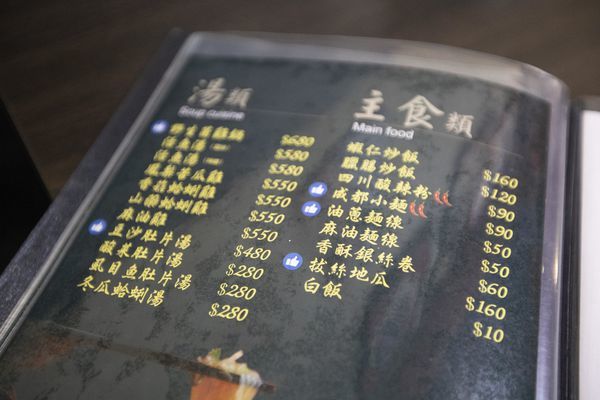 湯類
Soup cuisine
野生菌雞鍋 $680
活魚湯 $580
活魚湯 $580
鳳梨苦瓜雞 $550
香菇蛤蜊雞 $550
山藥蛤蜊雞 $550
麻油雞 $550
豆沙肚片湯 $480
酸菜肚片湯 $280
虱目魚肚片湯 $280
冬瓜蛤蜊湯 $280
主食類
Main food
蝦仁炒飯 $160
臘腸炒飯 $120
四川酸辣粉 $90
成都小麵 $90
油蔥麵線 $50
麻油麵線 $50
香酥銀絲卷 $60
拔絲地瓜 $160
白飯 $10